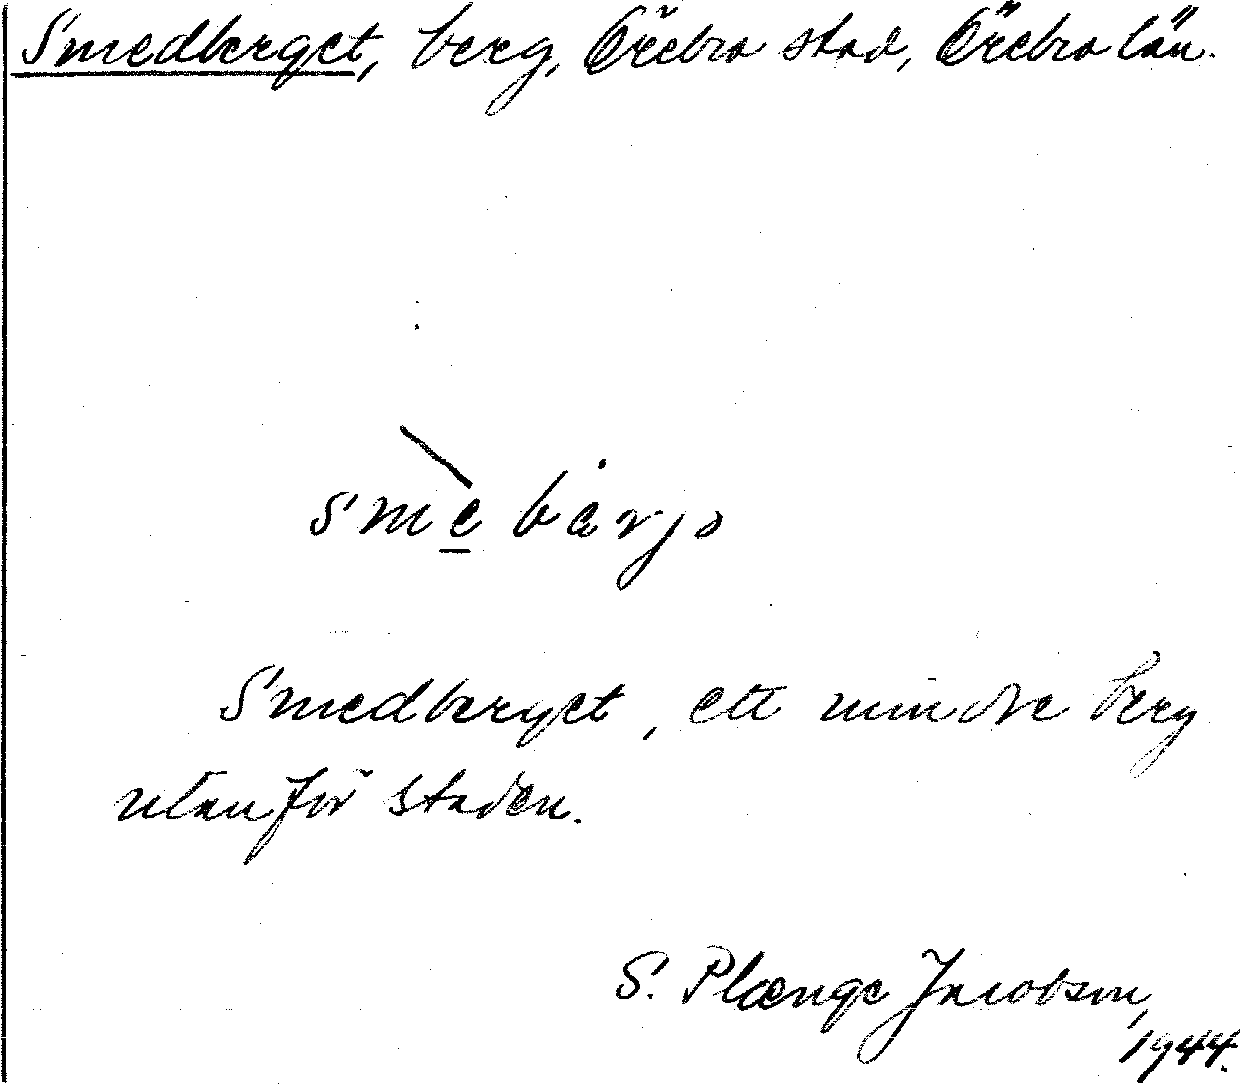 Smedberget, berg, Örebro stad, Örebro län.
Smedberget, ett mindre berg
utanför staden.
S. Plænge Jacobson,
1944.